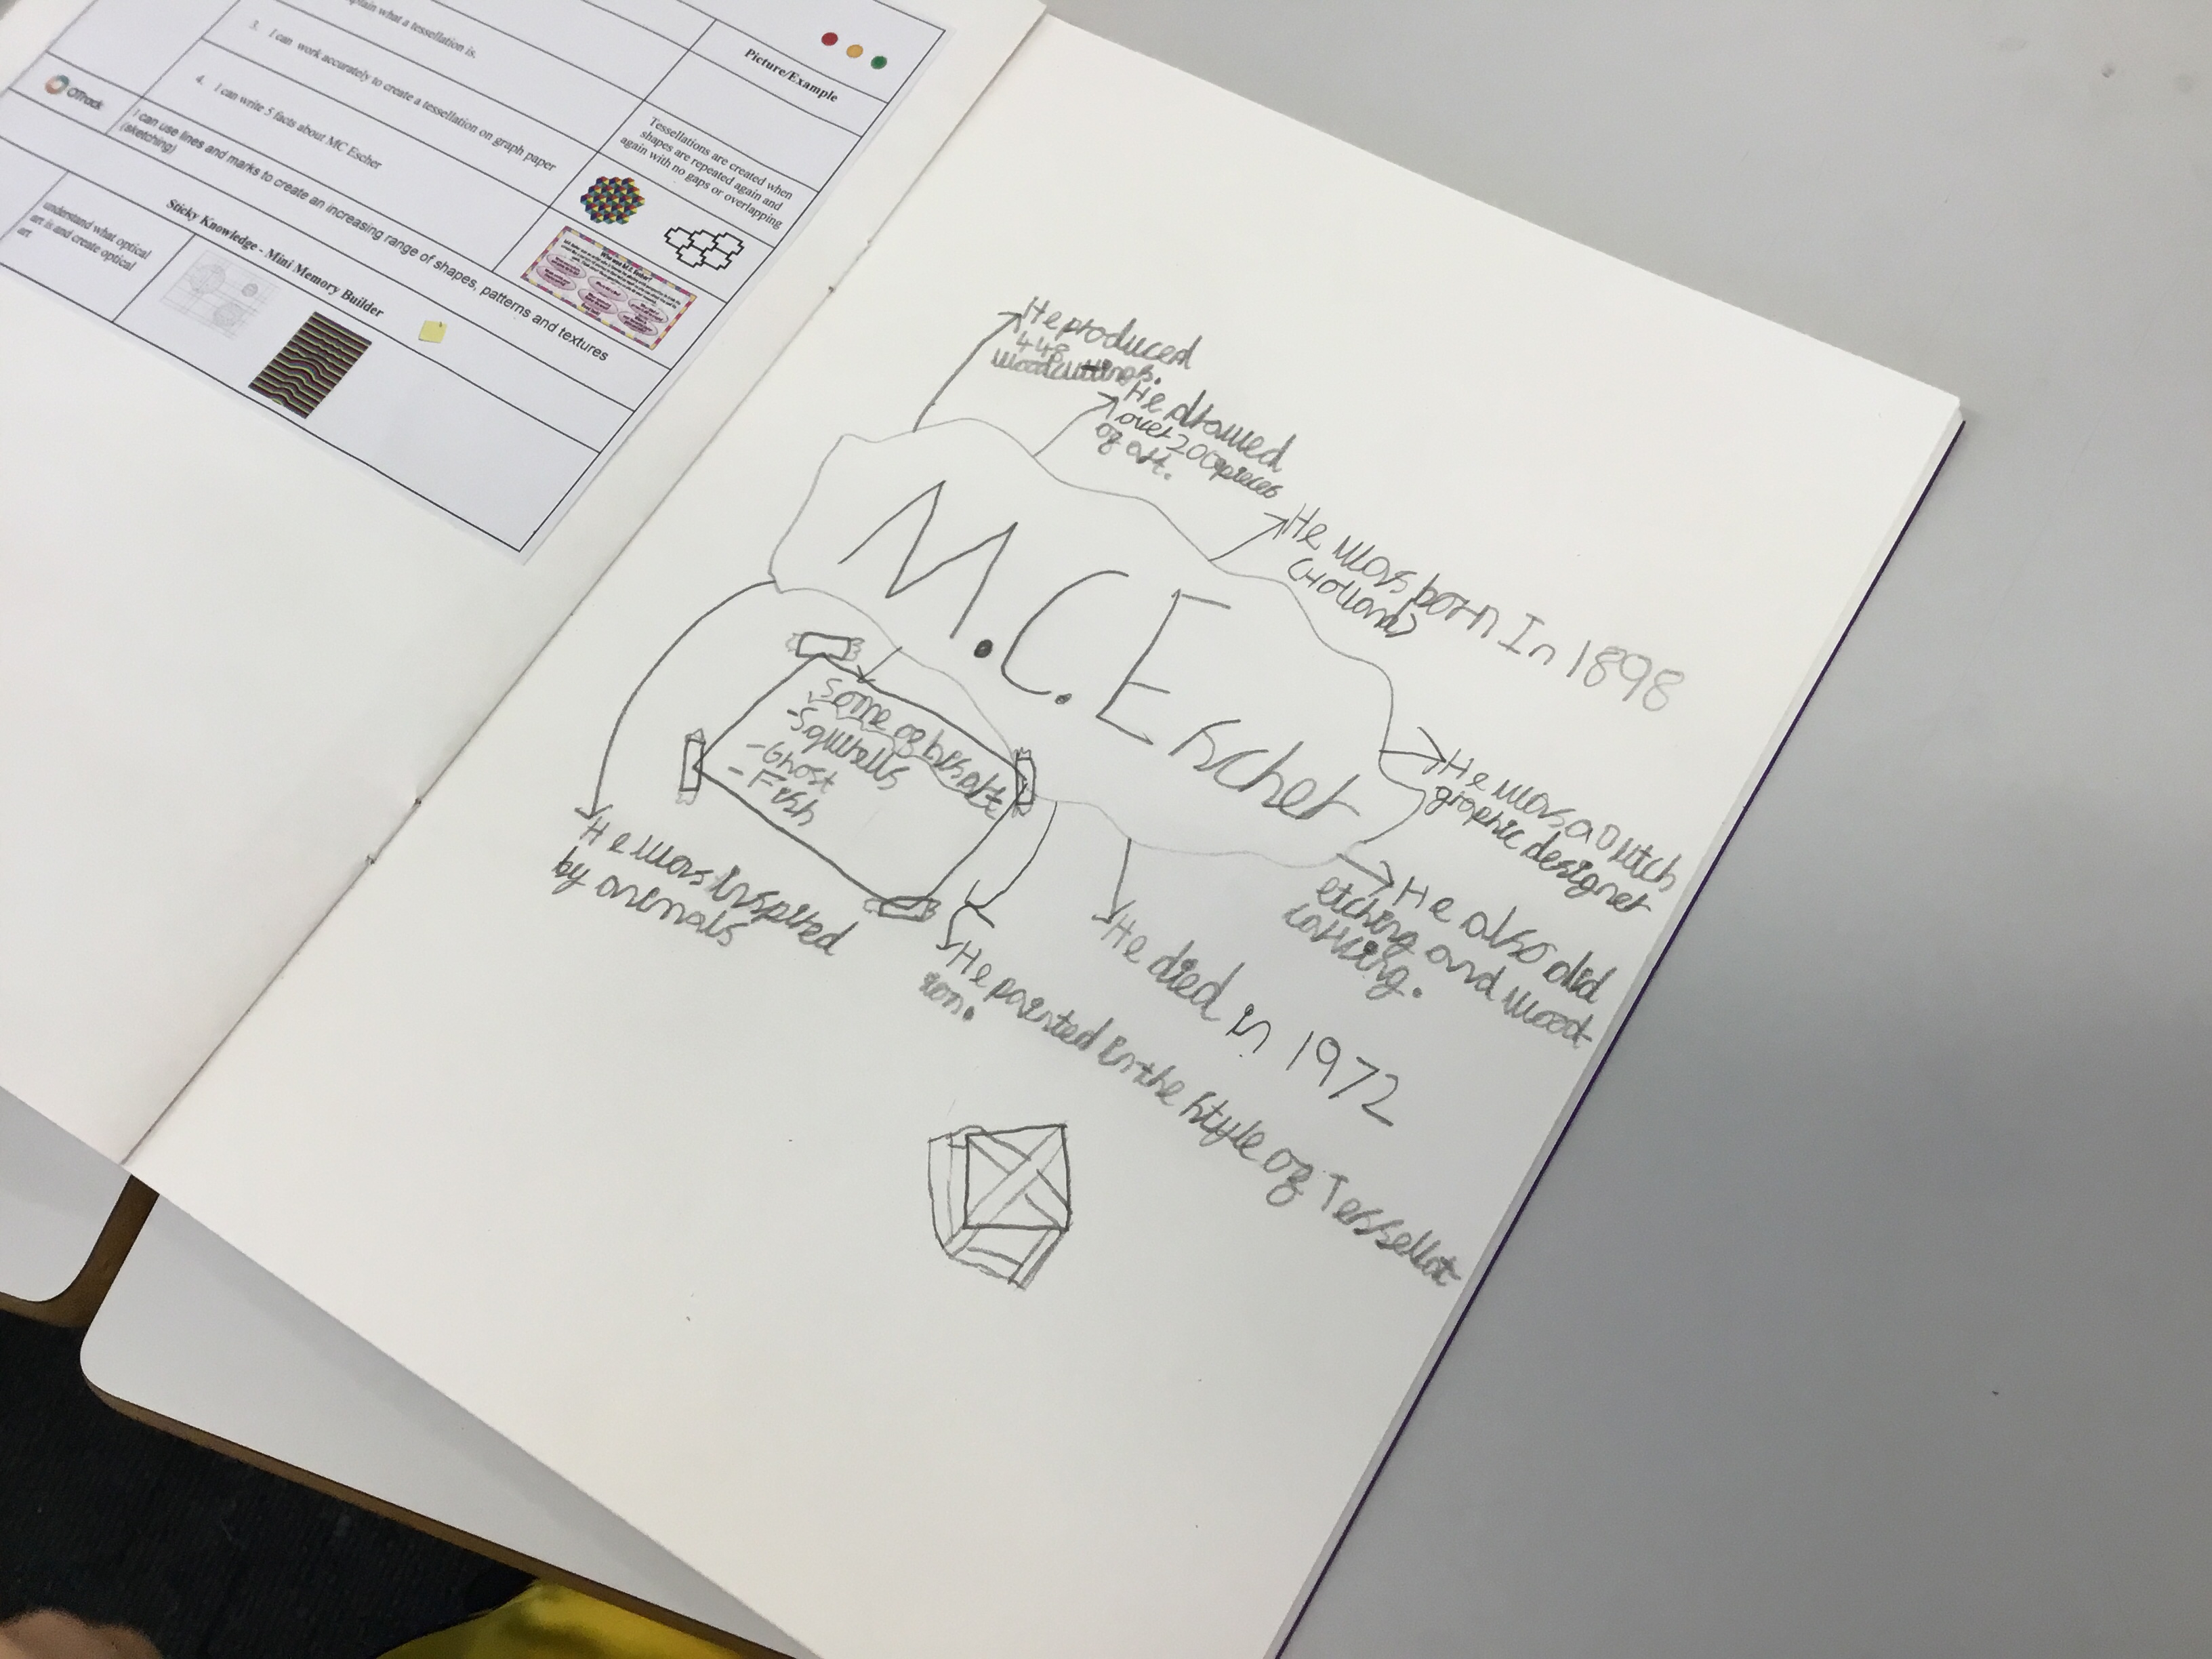 plain what a tessellation is.
3. I can work accurately to create a tessellation on graph paper
4. I can write 5 facts about MC Escher
Picture/Example
Tessellations are created when
shapes are repeated again and
again with no gaps or overlapping
OTrack
I can use lines and marks to create an increasing range of shapes, patterns and textures
(sketching)
Sticky Knowledge - Mini Memory Builder
understand what optical
art is and create optical
art
He produced
448
woodcuttings.
He drawed
over 200 pieces
of art.
He was born In 1898
(Holland)
M.C.Escher
He was a Dutch
graphic designer
He also did
etching and wood
carving.
He died in 1972
He painted in the style of Tessellat
ion.
Some of his art
-Squirells
-Ghost
-Fish
He was inspired
by animals